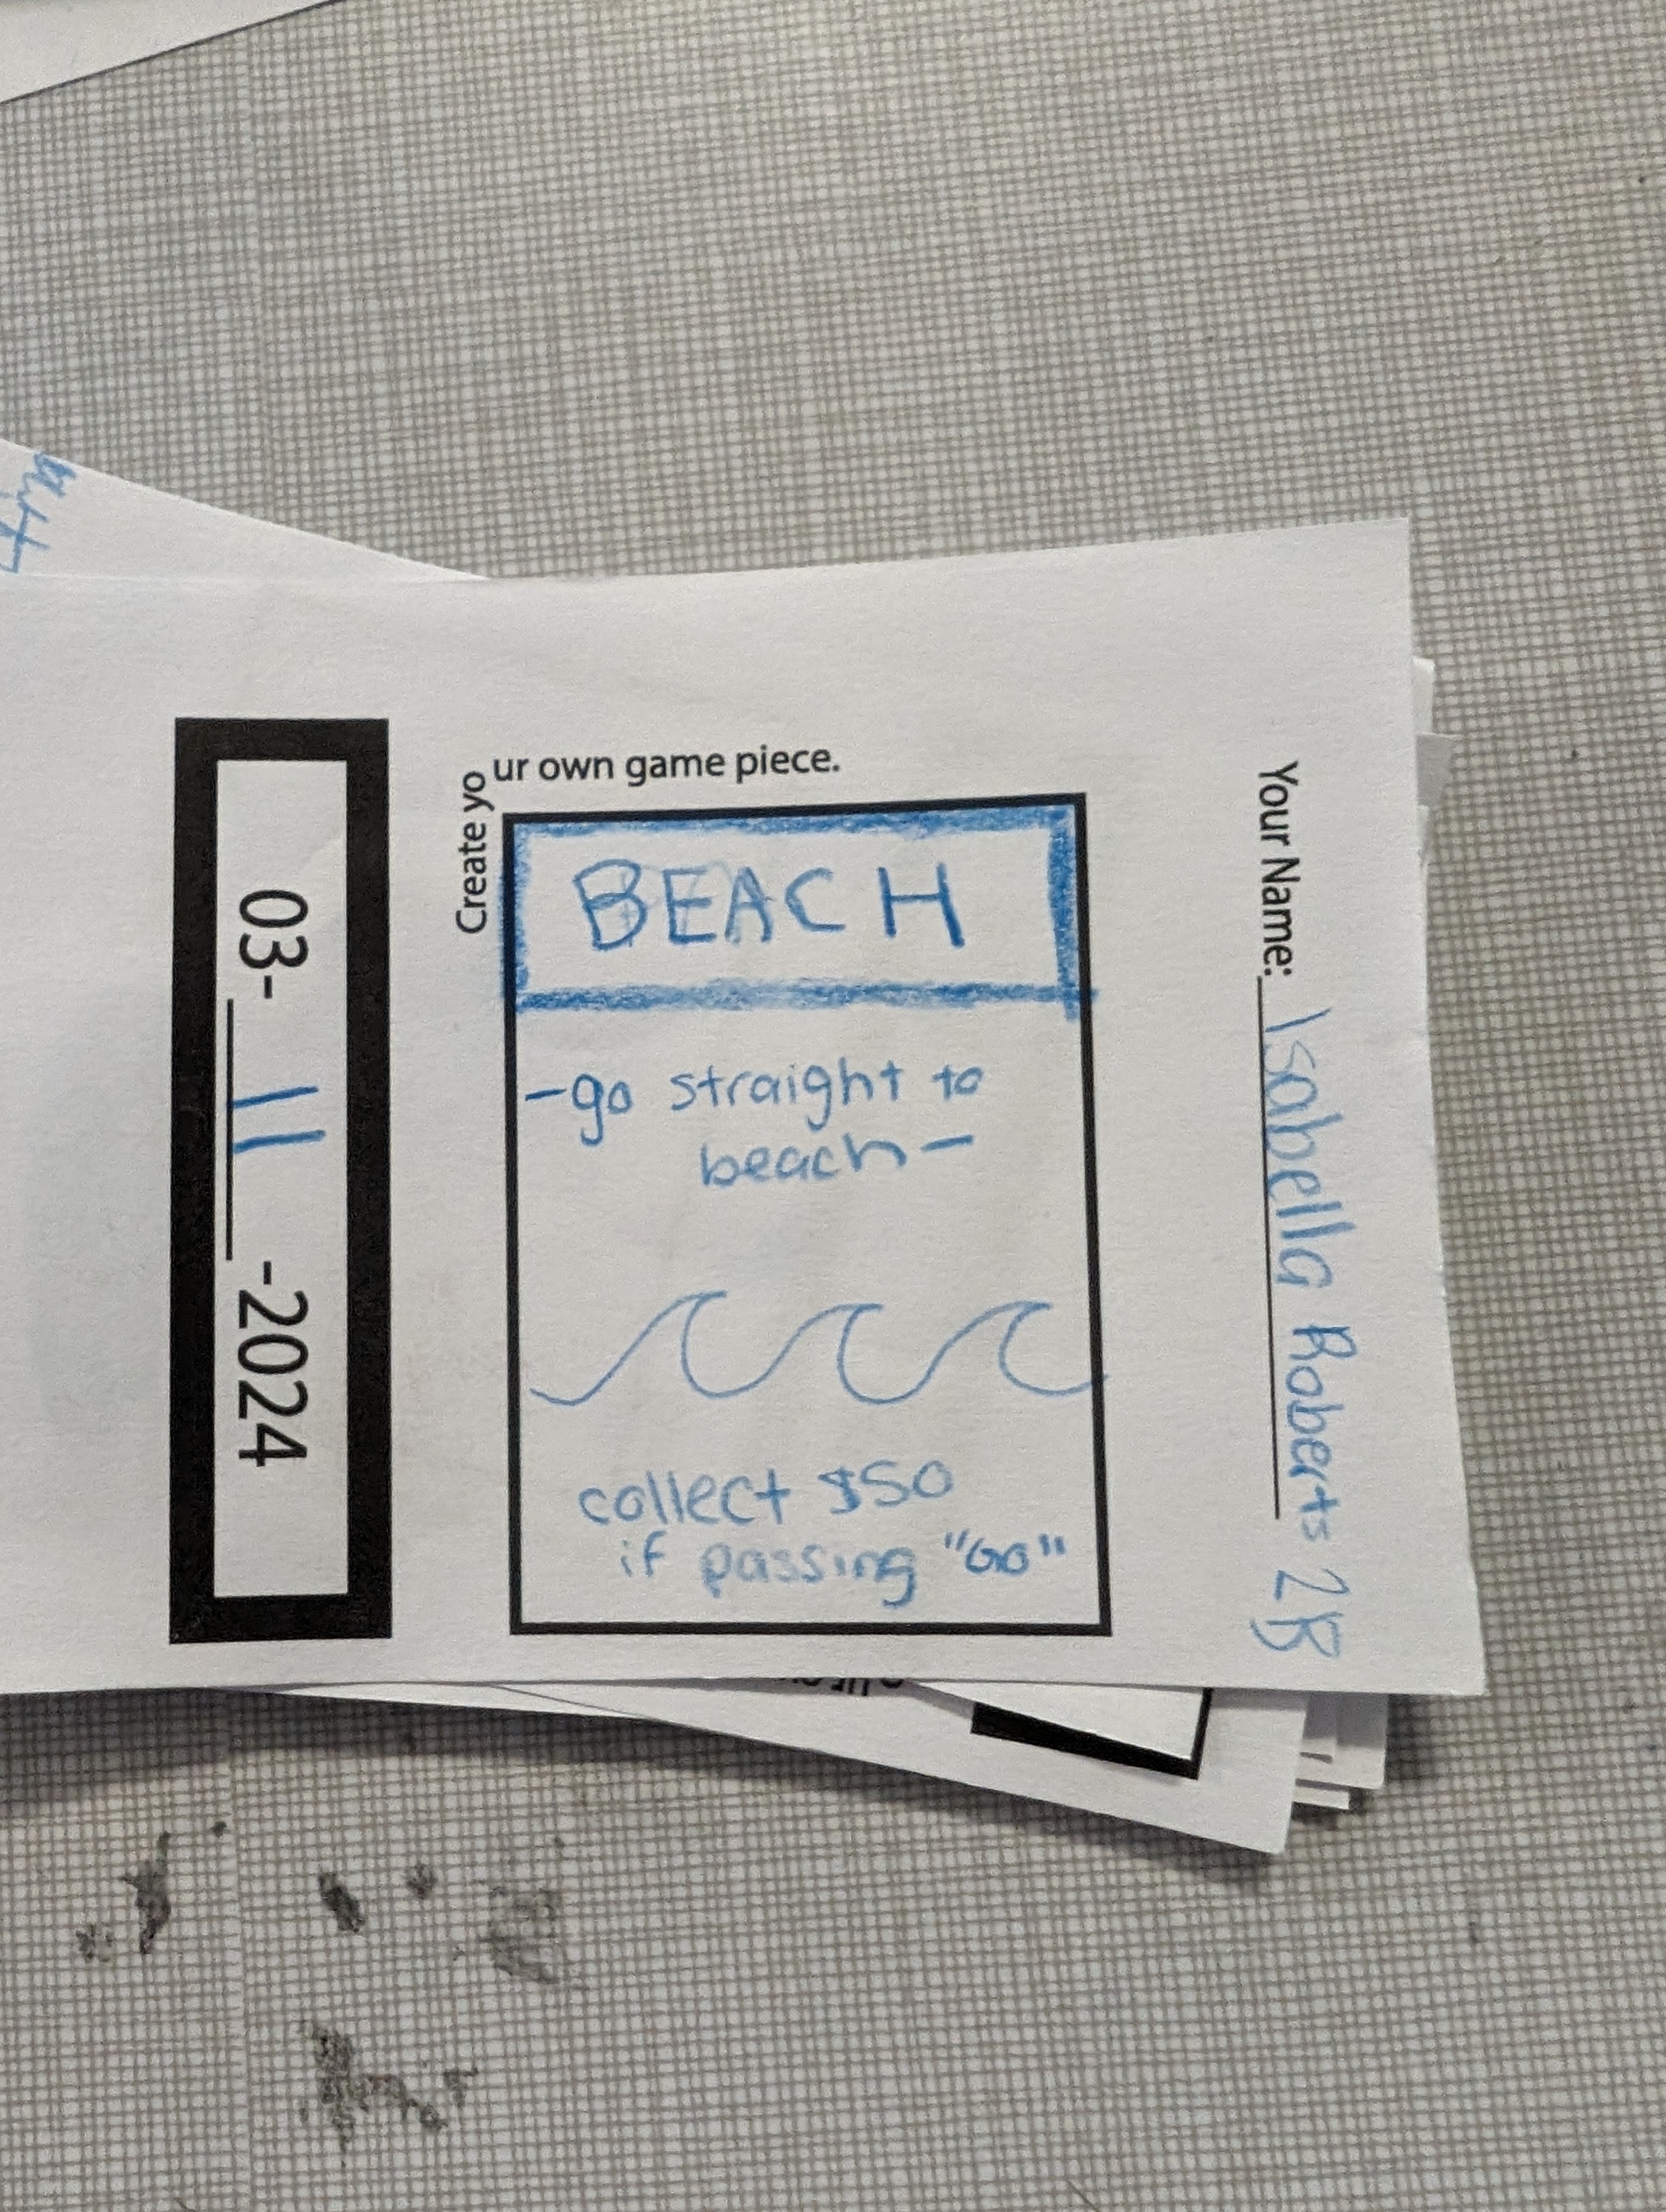 Your Name: Isabella Roberts 2B
Create your own game piece.
BEACH
-go straight to
beach-
collect $50
if passing "Go"
03-11-2024